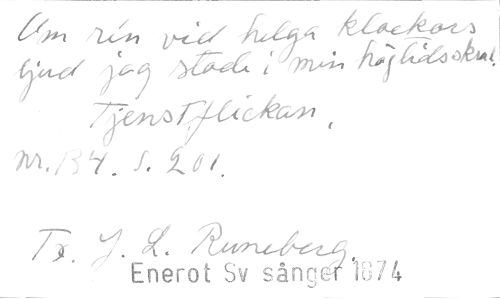 Om ren vid helga klockors
ljud jag stode i min högtidsskrud.
Tjenstflickan.
nr. 134. s. 201.
Tx. J. L. Runeberg.
Enerot Sv sånger 1874